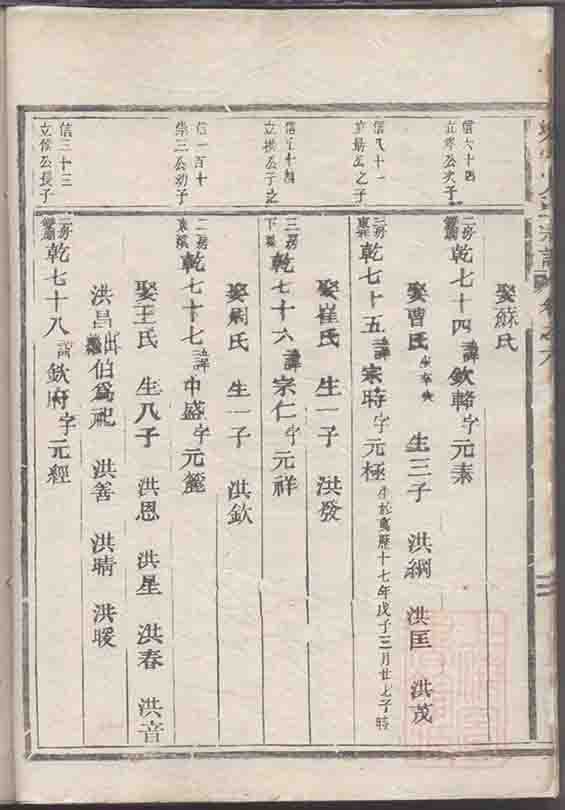 娶蘇氏
信六十四
公次子
二房
乾七十四 諱欽 字元素
娶曹氏 生三子 洪綱 洪匡 洪茂
信八十一
公之子
三房
乾七十五 諱宗時 字元極 生於萬歷十七年戊子三月廿七子時
娶崔氏 生一子 洪發
信五十四
立 公子之
三房
乾七十六 諱宗仁 字元祥
娶劉氏 生一子 洪欽
信一百十
崇三公幼子
二房
乾七十七 諱中盛 字元
娶王氏 生八子 洪恩 洪星 洪春 洪音
洪昌 出 伯為祀 洪善 洪晴 洪暖
信三十三
立 公長子
二房
乾七十八 諱欽府 字元經